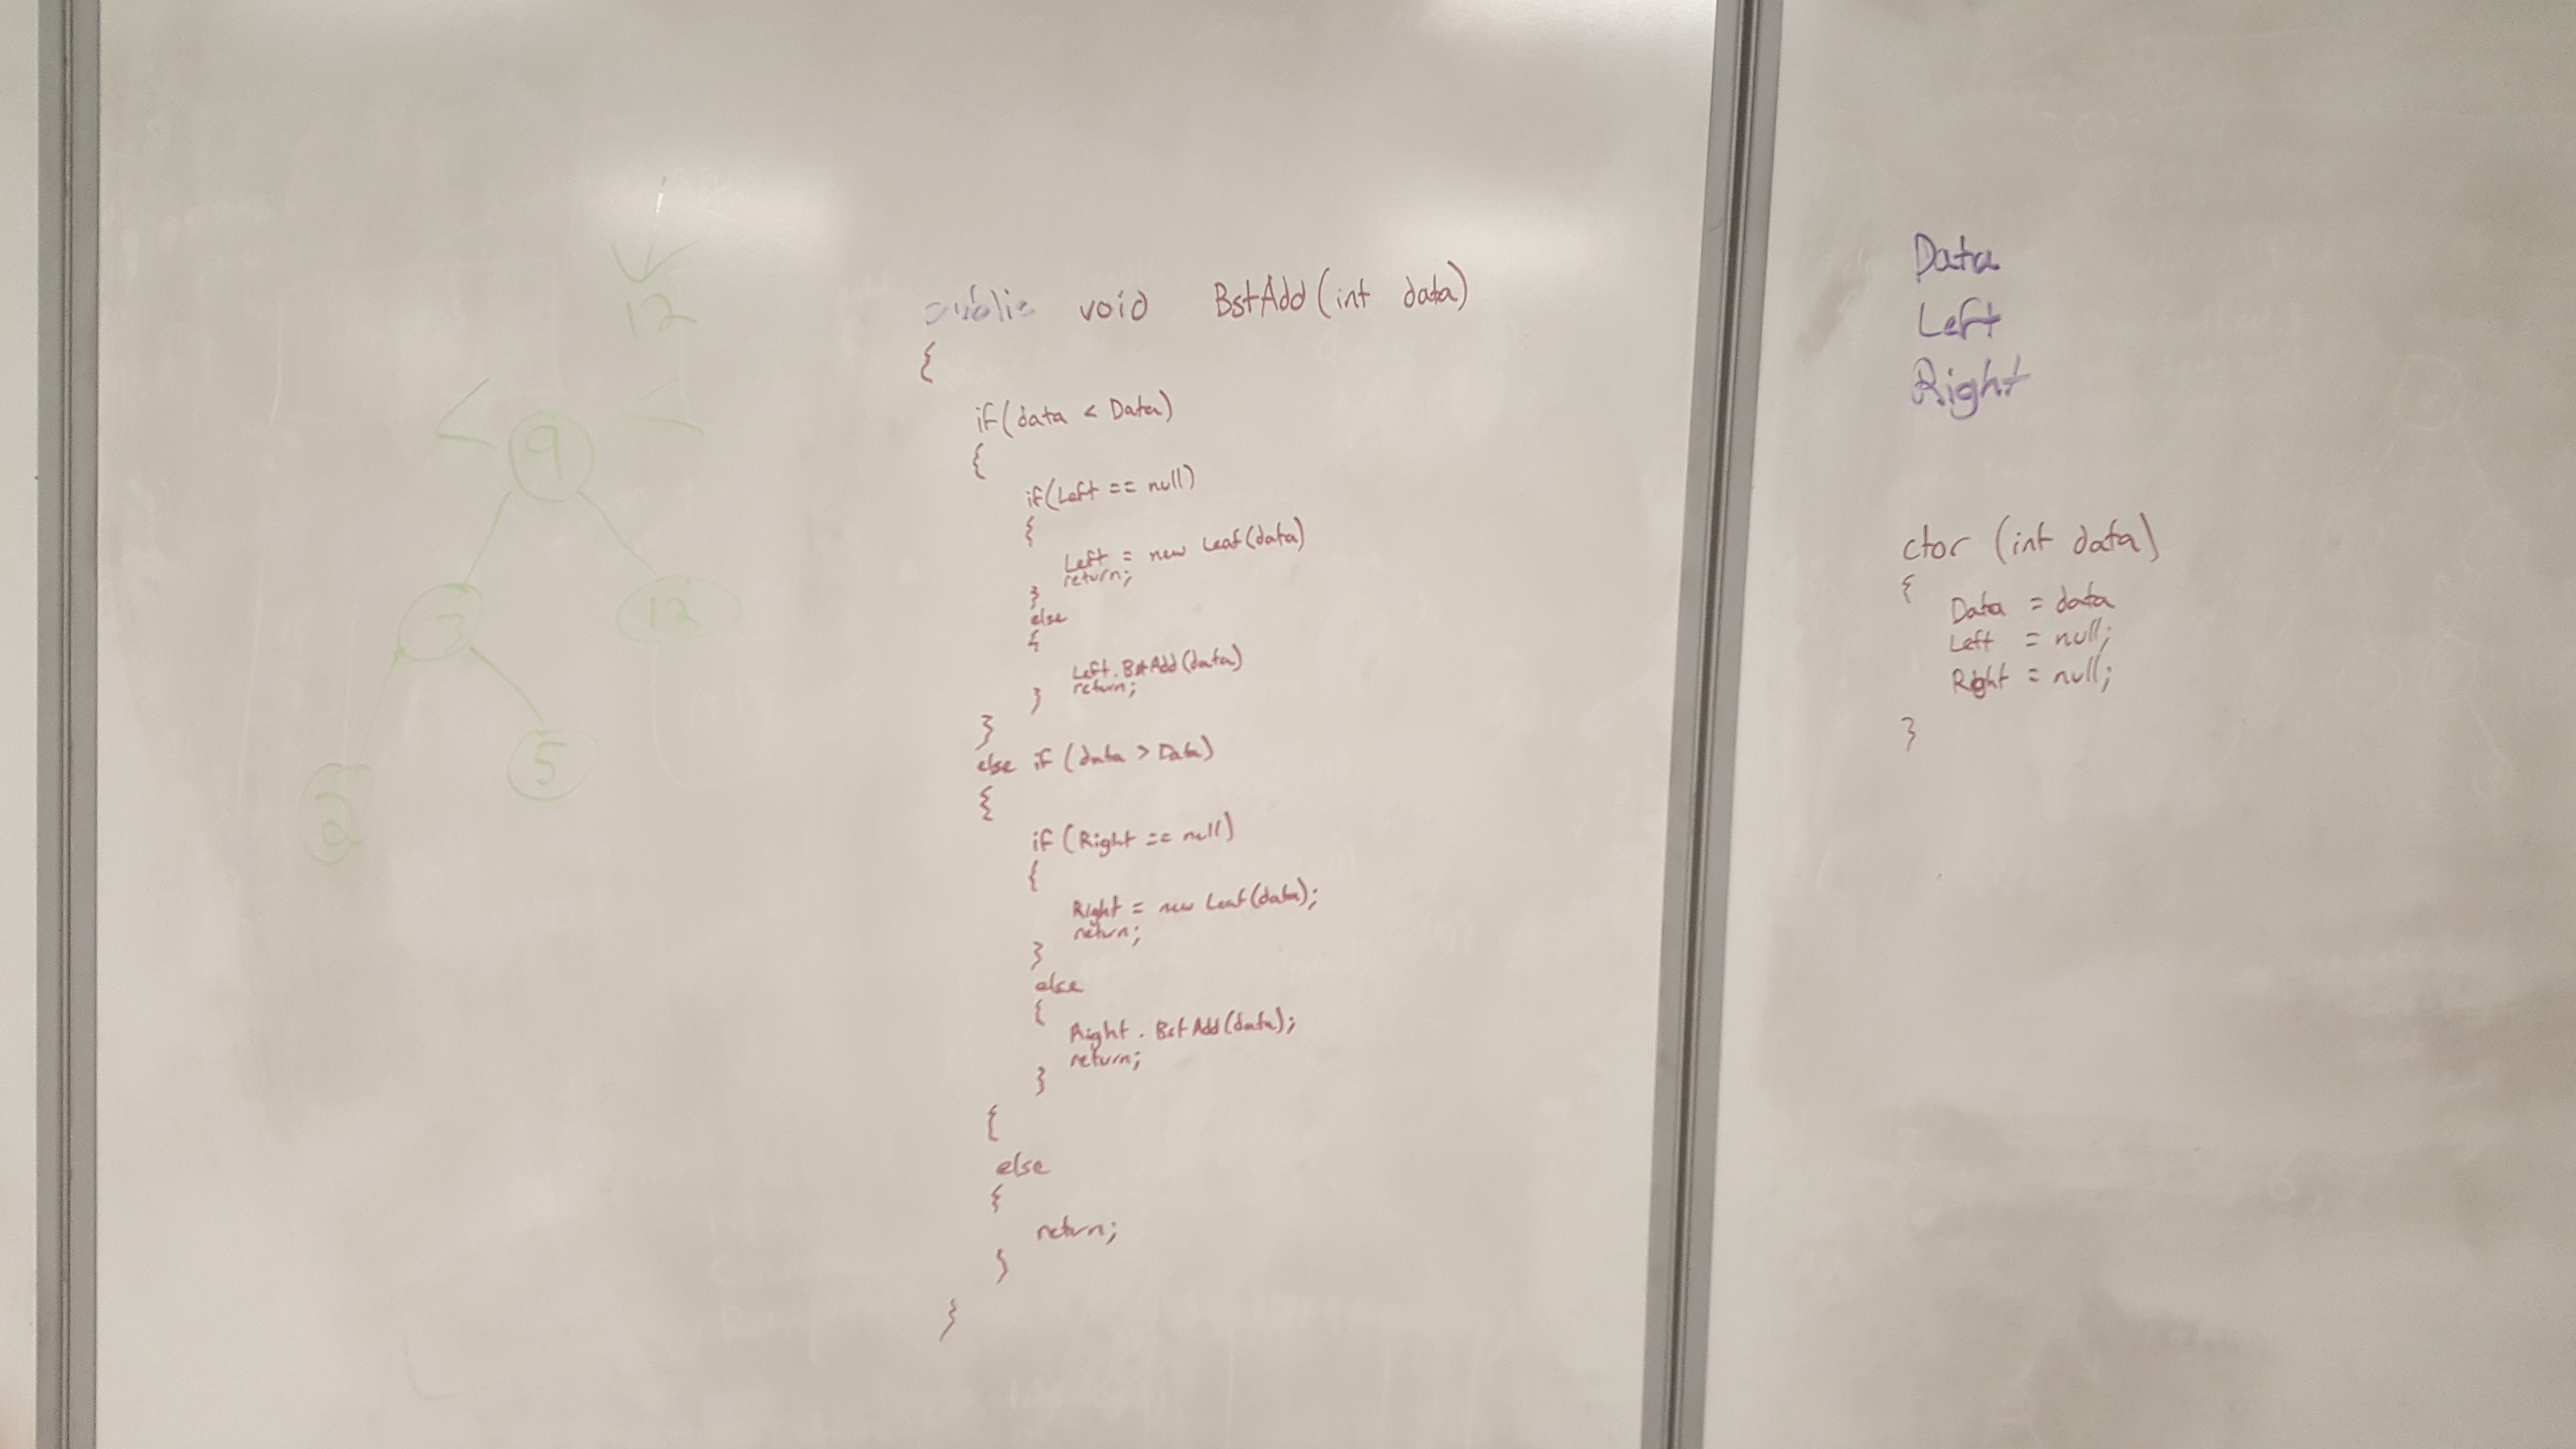 12
<
<
9
3
12
2
5
public void BstAdd(int data)
{
if(data < Data)
{
if(Left == null)
{
Left = new Leaf(data)
return;
}
else
{
Left.BstAdd(data)
return;
}
}
else if (data > Data)
{
if (Right == null)
{
Right = new Leaf(data);
return;
}
else
{
Right.BstAdd(data);
return;
}
{
else
{
return;
}
}
Data
Left
Right
ctor (int data)
{
Data = data
Left = null;
Right = null;
}